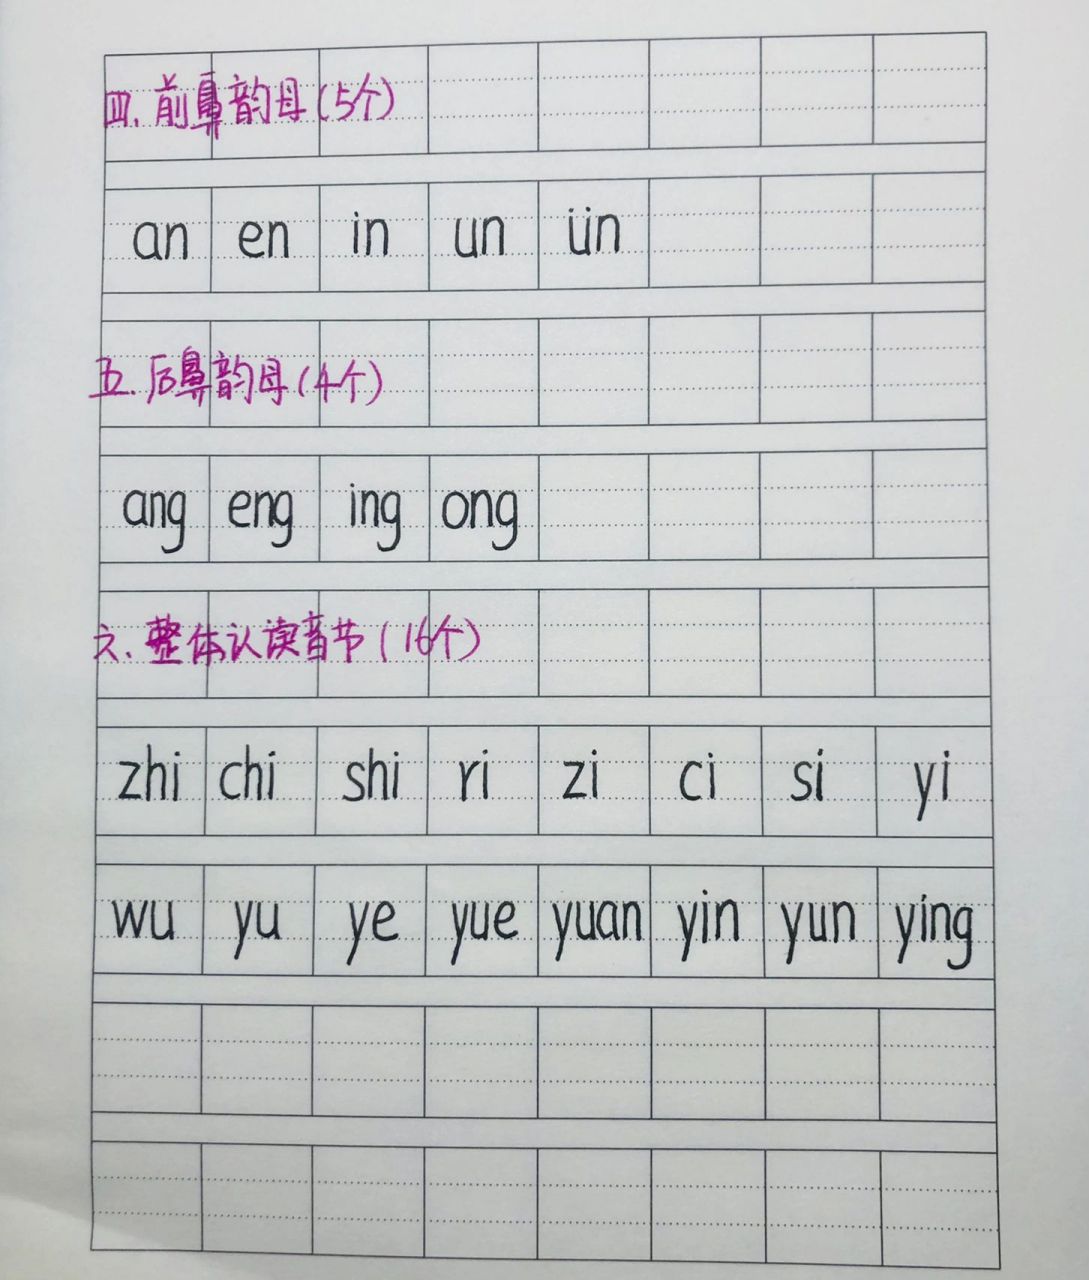 四.前鼻韵母(5个)
an en in un ün
五.后鼻韵母(4个)
ang eng ing ong
六.整体认读音节(16个)
zhi chi shi ri zi ci si yi
wu yu ye yue yuan yin yun ying